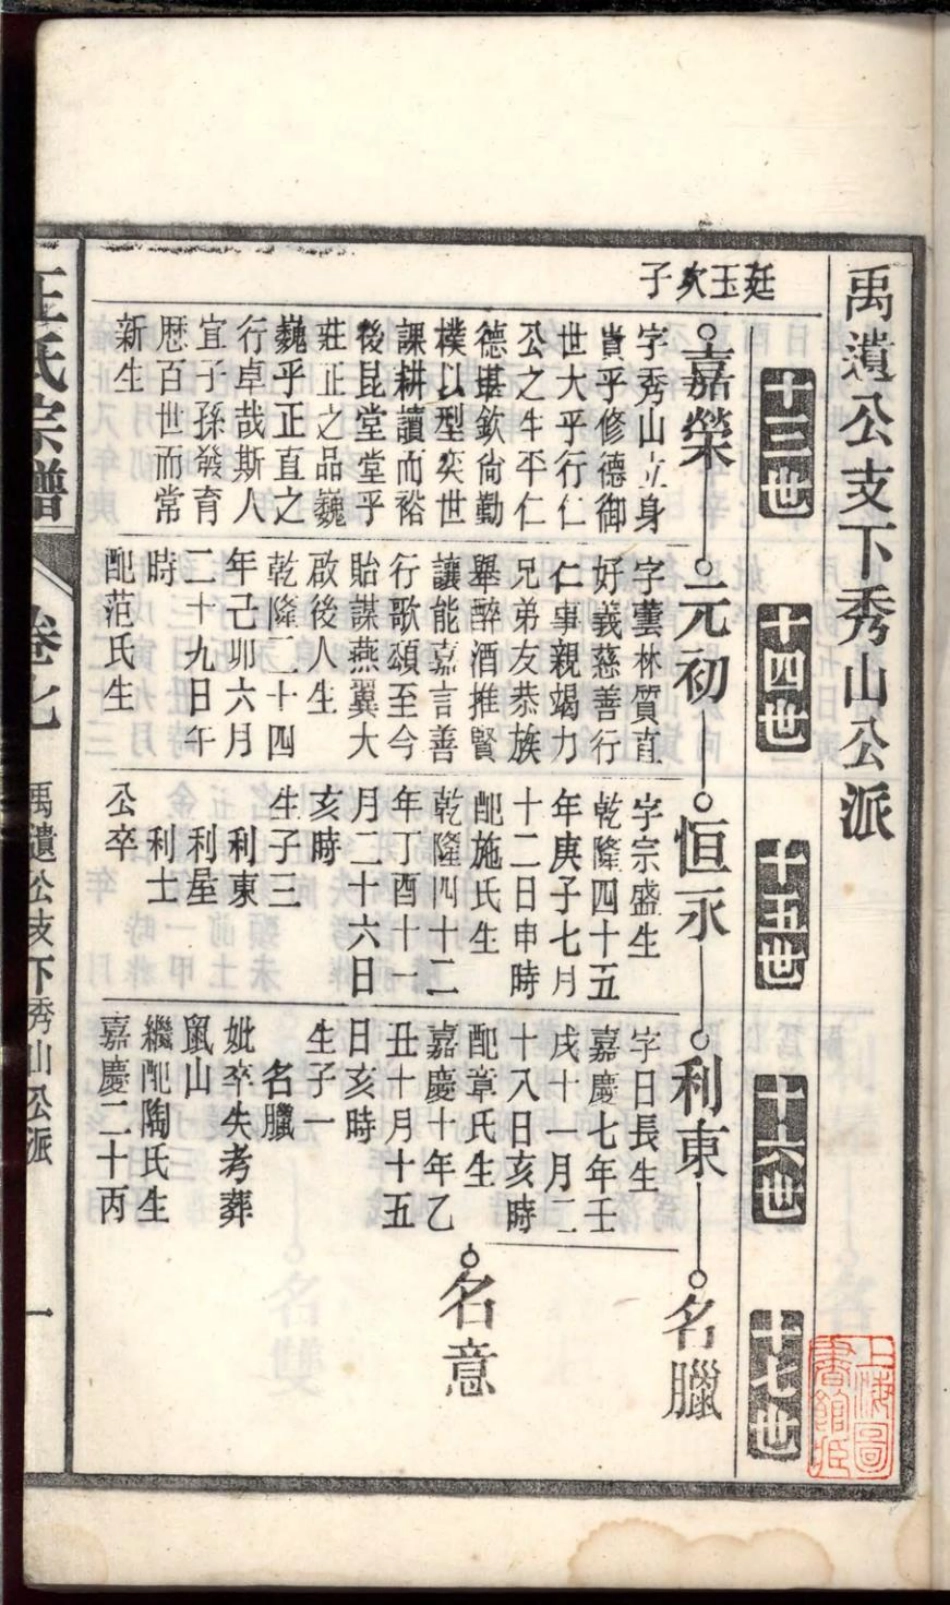 禹遺公支下秀山公派
十三世
十四世
十五世
十六世
十七世
廷玉次子
嘉榮
字秀山立身
貴乎修德御
世大乎行仁
公之生平仁
德堪欽尙勤
樸以型奕世
課耕讀而裕
後昆堂堂乎
莊正之品巍
巍乎正直之
行卓哉斯人
宜子孫發育
歷百世而常
新生
元初
字蕓林質直
好義慈善行
仁事親竭力
兄弟友恭族
舉醉酒推賢
讓能嘉言善
行歌頌至今
貽謀燕翼大
啟後人生
乾隆二十四
年己卯六月
二十九日午
時
配范氏生
恒永
字宗盛生
乾隆四十五
年庚子七月
十二日申時
配施氏生
乾隆四十二
年丁酉十一
月二十六日
亥時
生子三
利東
利星
利士
公卒
利東
字日長生
嘉慶七年壬
戌十一月二
十八日亥時
配章氏生
嘉慶十年乙
丑十月十五
日亥時
生子一
名臘
妣卒失考葬
鼠山
繼配陶氏生
嘉慶二十丙
名臘
名意
王氏宗譜
卷七
禹遺公支下秀山公派
一
上海圖
書館藏